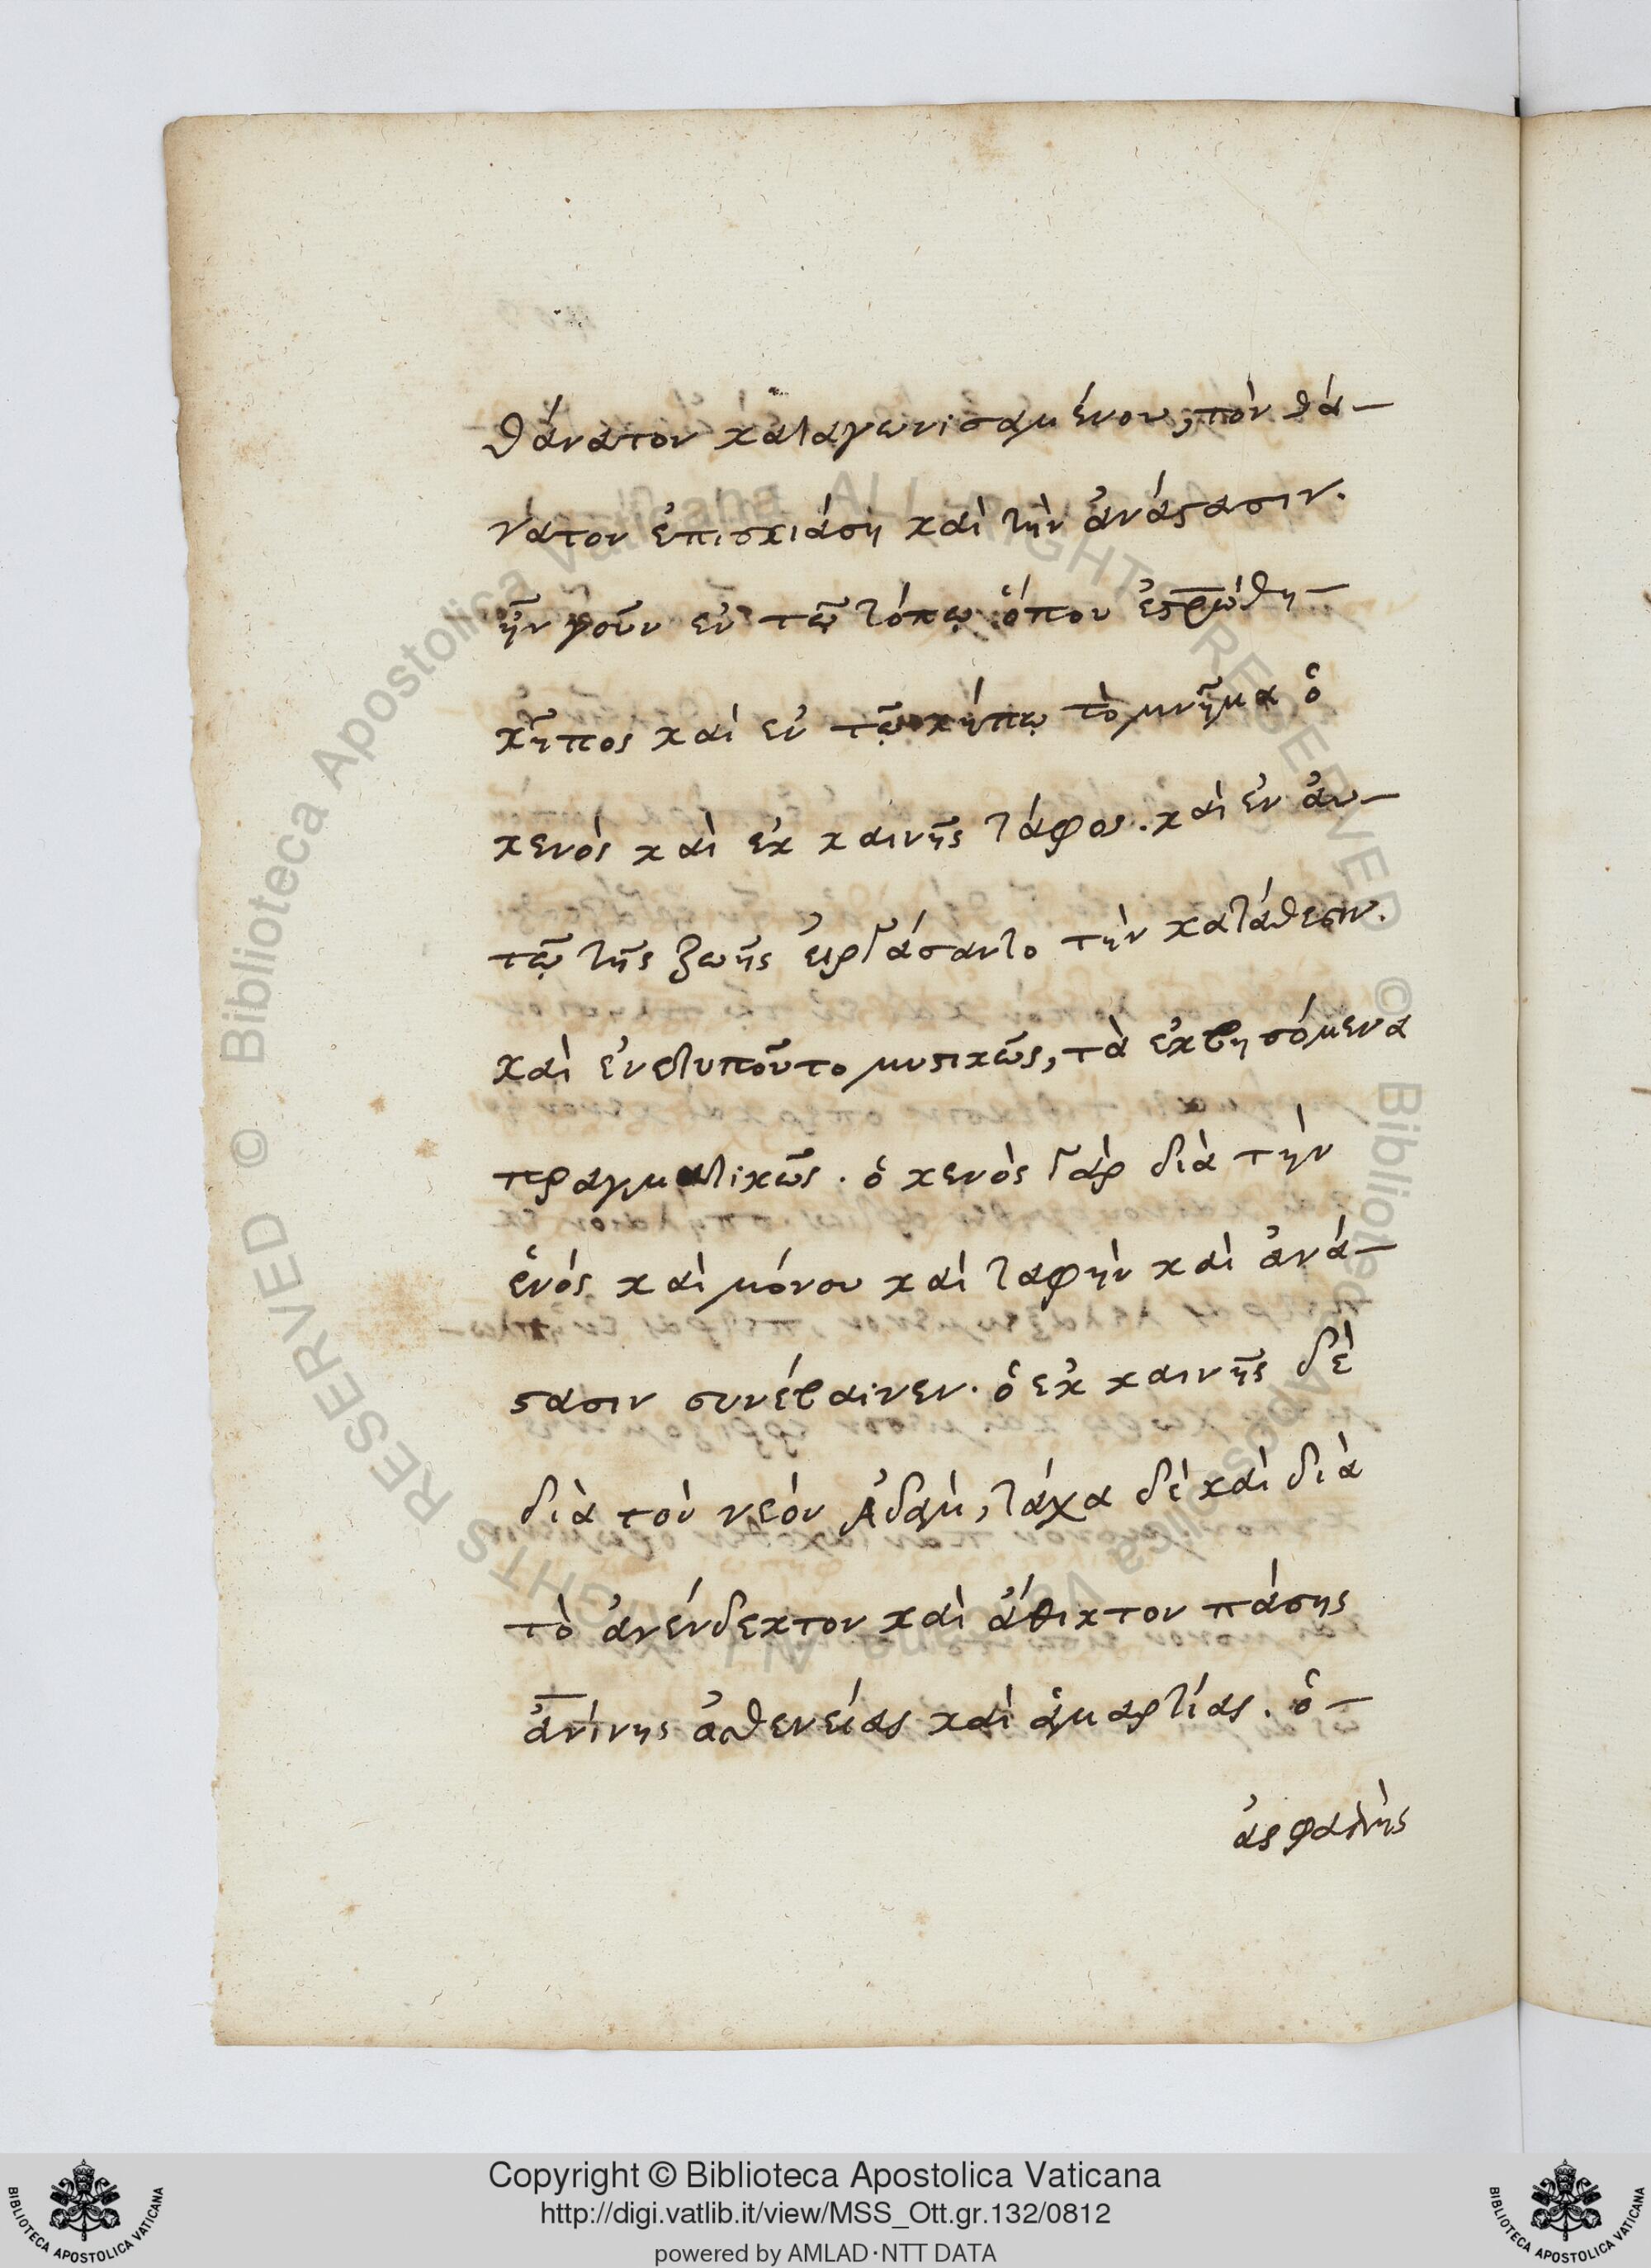 θάνατον καταγωνισαμένου, τὸν θά-
νατον ἐπισκιάση καὶ τὴν ἀνάστασιν.
ἦν γοῦν ἐν τῷ τόπῳ ὅπου ἐσρώθη
κῆπος καὶ ἐν τῷ κήπῳ τὸ μνῆμα ὁ
κενὸς καὶ ἐκ καινῆς τάφος. καὶ ἐν αὐ-
τῷ τῆς ζωῆς εἰργάσαντο τὴν κατάθεσιν.
καὶ ἐνετυποῦτο μυστικῶς, τὰ ἐκβησόμενα
πραγματικῶς. ὁ κενὸς γὰρ διὰ τὴν
ἑνός καὶ μόνου καὶ ταφὴν καὶ ἀνά-
στασιν συνέβαινεν. ὁ ἐκ καινῆς δὲ
διὰ τὸν νεόν Ἀδὰμ, τάχα δὲ καὶ διὰ
τὸ ἀνένδεκτον καὶ ἄθικτον πάσης
ἀνίνης ἀσθενείας καὶ ἁμαρτίας. ὁ-
ἀσφαλὴς
Copyright © Biblioteca Apostolica Vaticana
http://digi.vatlib.it/view/MSS_Ott.gr.132/0812
powered by AMLAD·NTT DATA
BIBLIOTECA APOSTOLICA VATICANA
BIBLIOTECA APOSTOLICA VATICANA